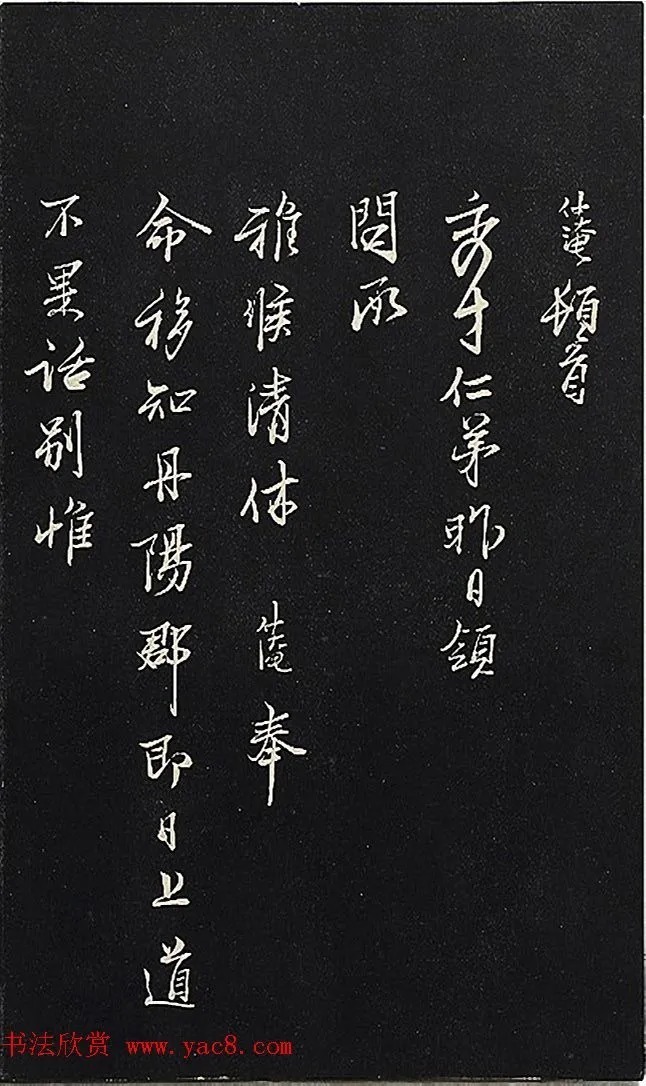 仲淹頓首
秀才仁弟昨日領
問承
雅候清休 仲淹奉
命移知丹陽郡即日上道
不果話別惟
书法欣赏 www.yac8.com